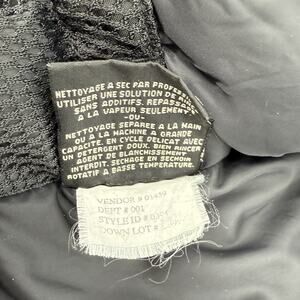 NETTOYAGE A SEC PAR PROFESSIO
UTILISER UNE SOLUTION DE
SANS ADDITIFS. REPASSAGE
A LA VAPEUR SEULEMENT
-OU-
NETTOYAGE SEPAREE A LA MAIN
OU A LA MACHINE A GRANDE
CAPACITE, EN CYCLE DELICAT AVEC
UN DETERGENT DOUX. BIEN RINCER
AGENT DE BLANCHISSEMENT
INTERDIT. SECHAGE EN SECHOIR
ROTATIF A BASSE TEMPERATURE.
VENDOR #
DEPT # 001
STYLE ID #
DOWN LOT #